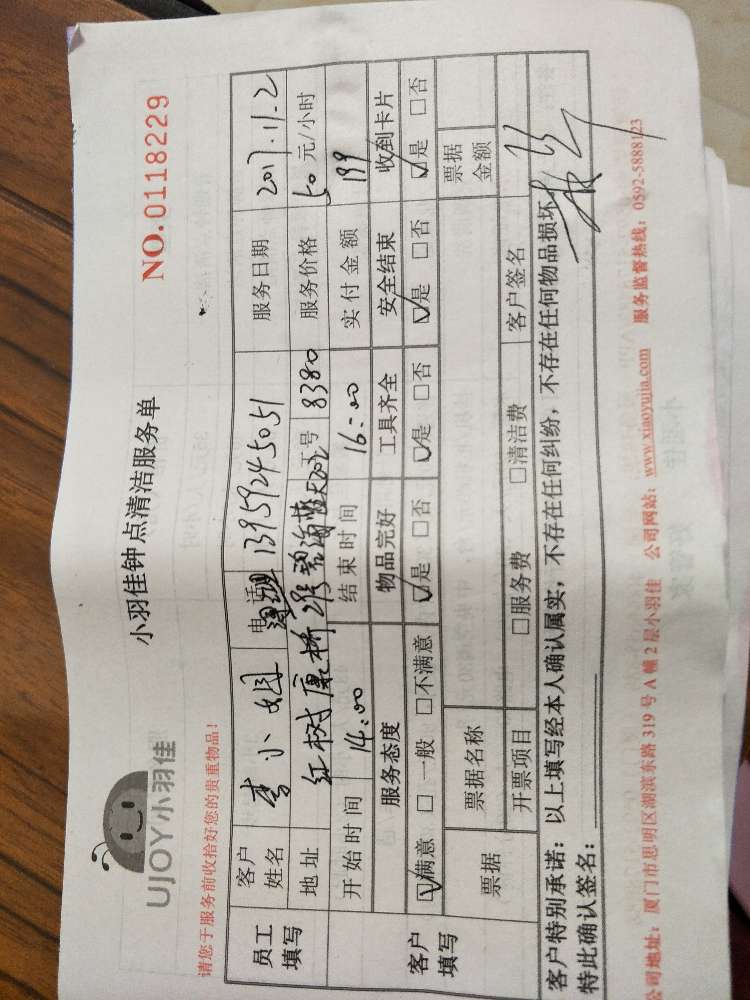 UJOY小羽佳
小羽佳钟点清洁服务单
NO.0118229
请您于服务前收拾好您的贵重物品!
员工填写 客户姓名 李小姐 电话 13959245051 服务日期 2017.11.2
地址 红树康桥 工号 8380 服务价格 50元/小时
开始时间 14:00 结束时间 16:00 实付金额 199
客户填写 服务态度 物品完好 工具齐全 安全结束 收到卡片
☑满意 □一般 □不满意 ☑是 □否 ☑是 □否 ☑是 □否 ☑是 □否
票据 票据名称 票据金额
开票项目 □服务费 □清洁费 客户签名
客户特别承诺:以上填写经本人确认属实,不存在任何纠纷,不存在任何物品损坏
特此确认签名:
公司地址:厦门市思明区湖滨东路319号A幢2层小羽佳 公司网站:www.xiaoyujia.com 服务监督热线:0592-5888123